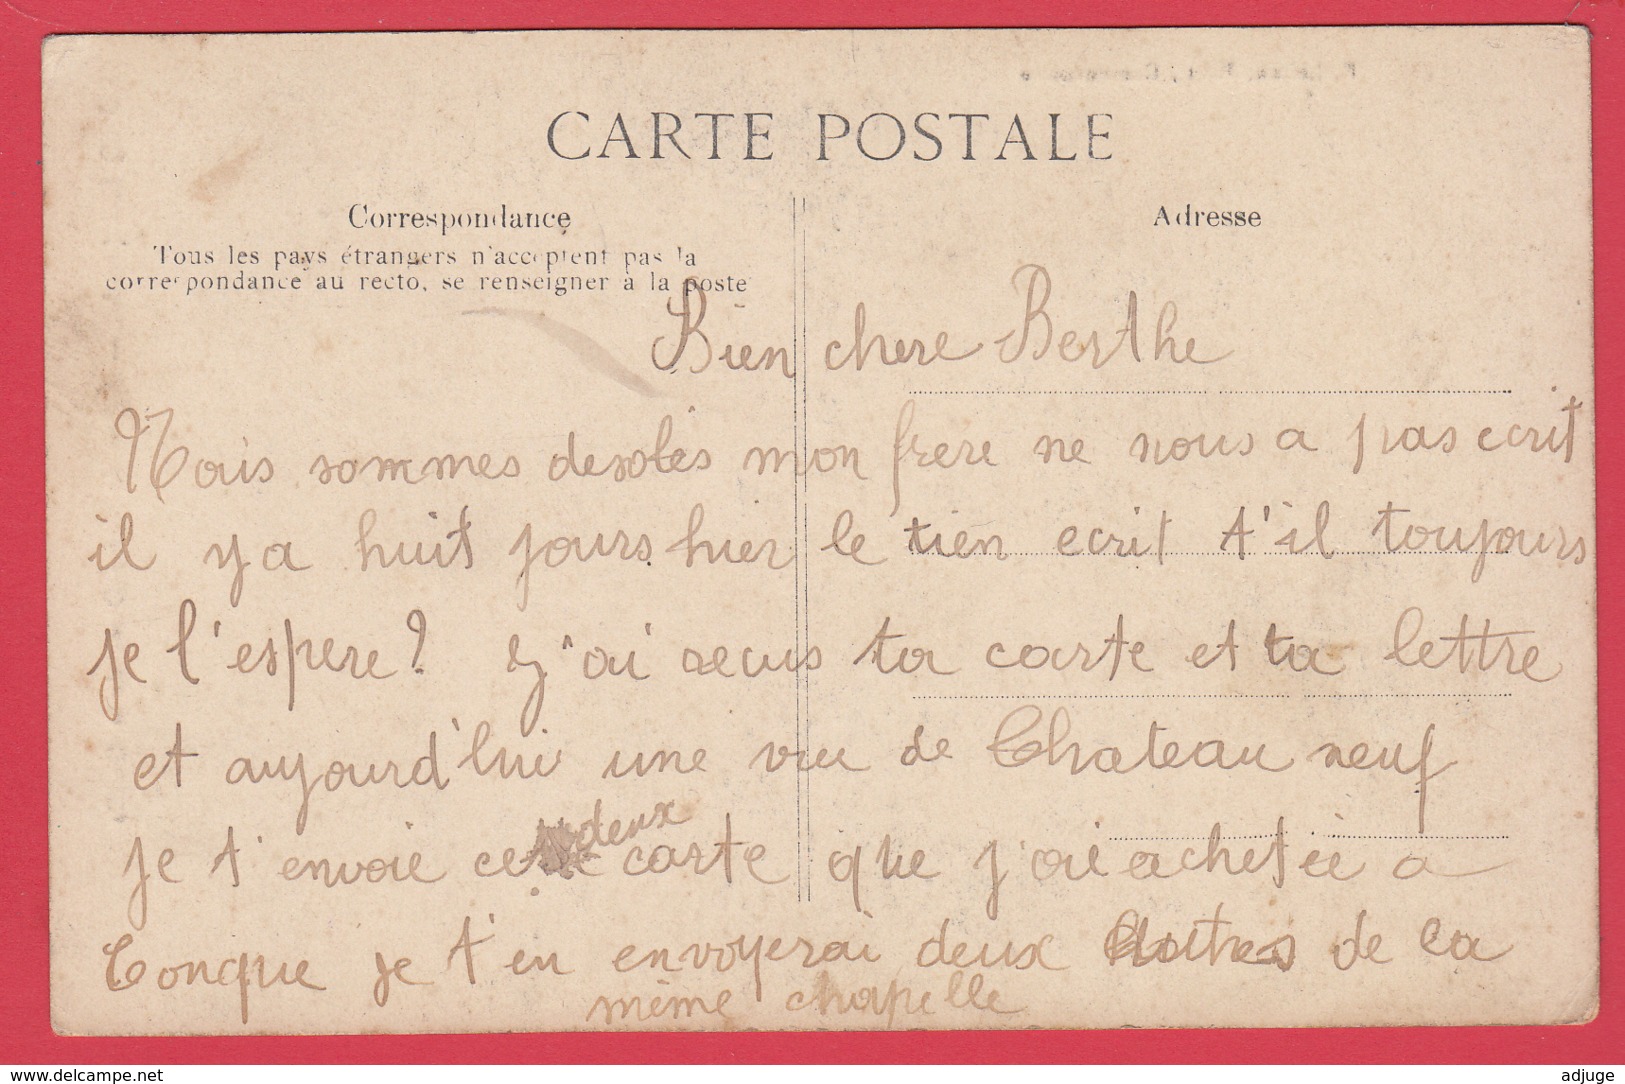 CARTE POSTALE
Correspondance
Adresse
Tous les pays étrangers n'acceptent pas la
correspondance au recto, se renseigner à la poste
Bien chere Berthe
Nous sommes desolés mon frere ne nous a pas ecrit
il y a huit jours hier le tien ecrit t'il toujours
je l'espere? J'ai recus ta carte et ta lettre
et aujourd'hui une vue de Chateau neuf
je t'envoie ces deux carte que j'ai achetée a
Conque je t'en envoyerai deux autres de la
même chapelle
www.delcampe.net
adjuge